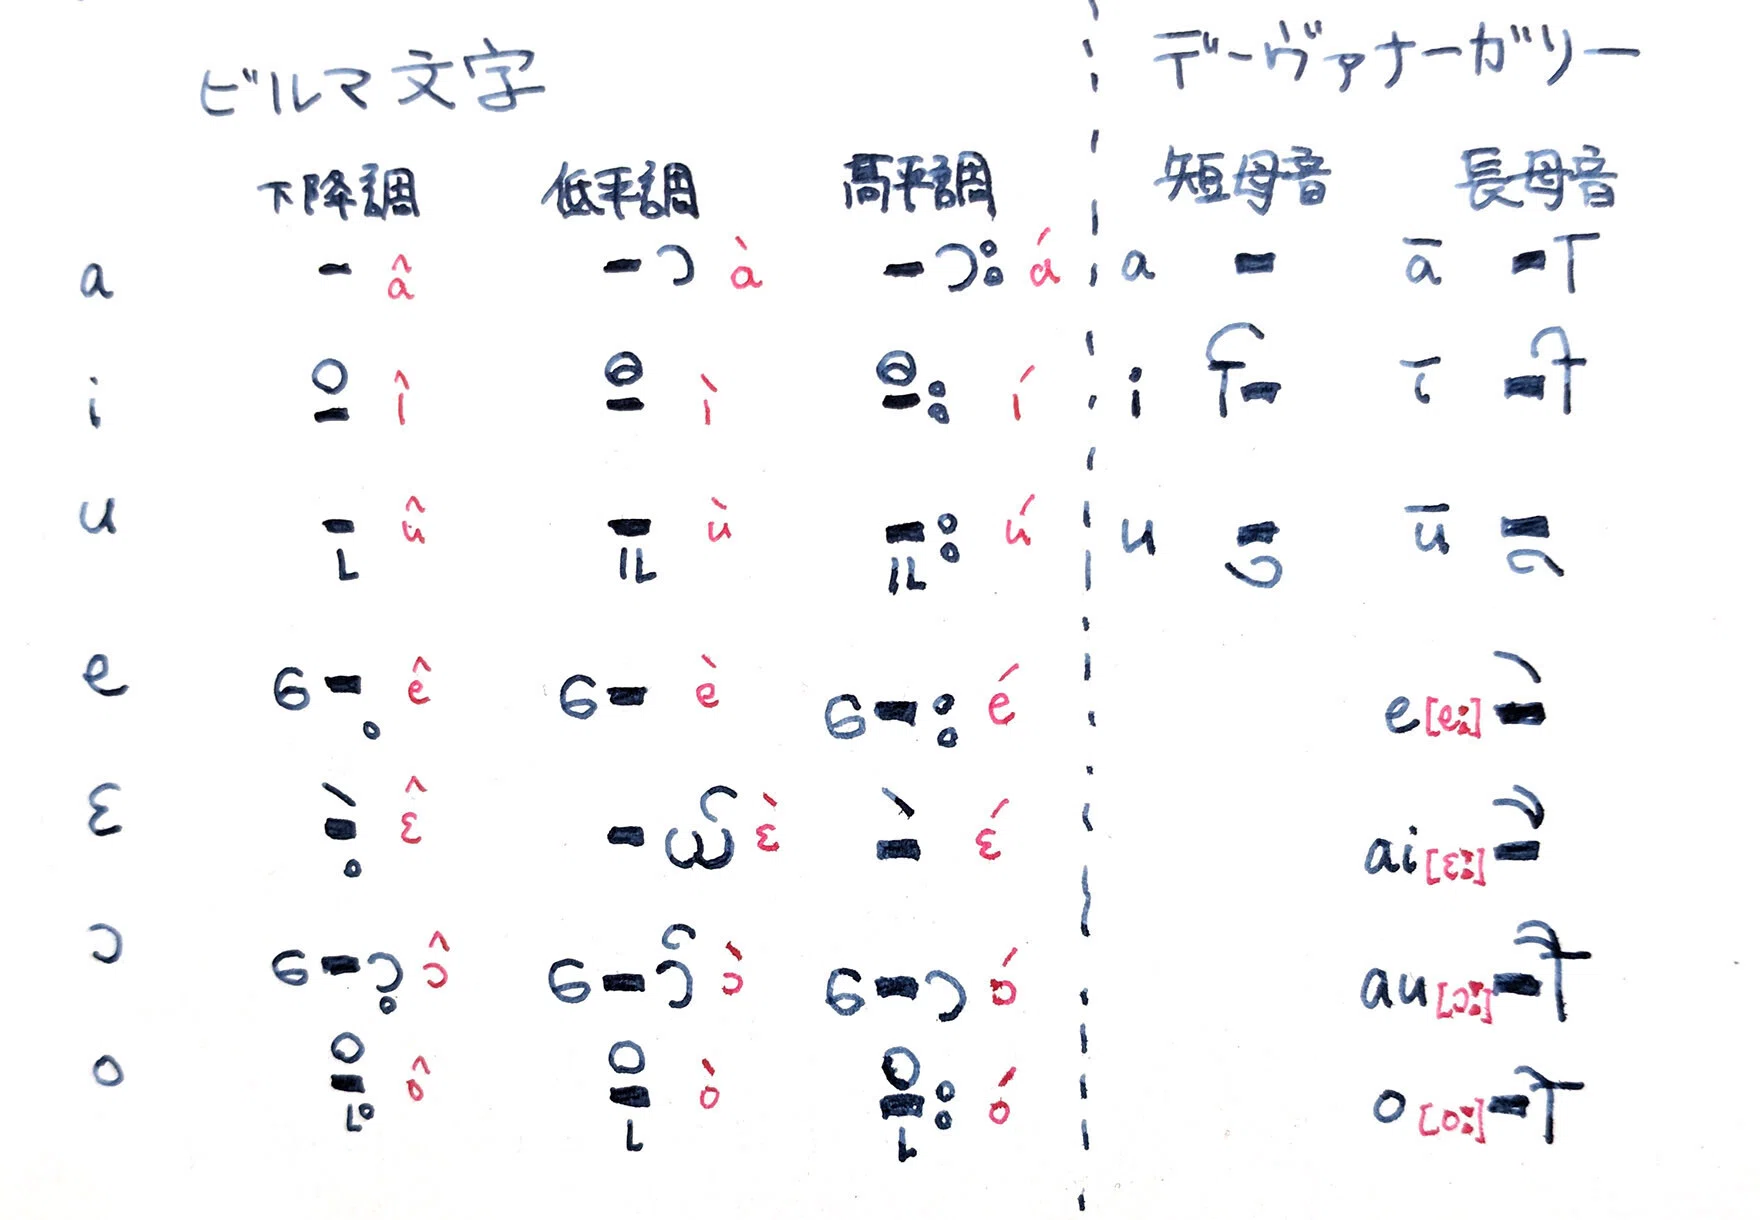 ビルマ文字 デーヴァナーガリー
下降調 低平調 高平調 短母音 長母音
a - â -ာ à -ား á a - ā -ा
i -ိ î -ီ ì -ီး í i -ि ī -ी
u -ု û -ူ ù -ူး ú u -ु ū -ू
e ေ-့ ê ေ- è ေ-း é e[e:] -े
ɛ -ဲ့ ɛ̂ -ယ် ɛ̀ -ဲ ɛ́ ai[ɛ:] -ै
ɔ ေ-ာ့ ɔ̂ ေ-ာ် ɔ̀ ေ-ာ ó au[ɔ:] -ौ
o -ို့ ô -ို ò -ိုး ó o[o:] -ो